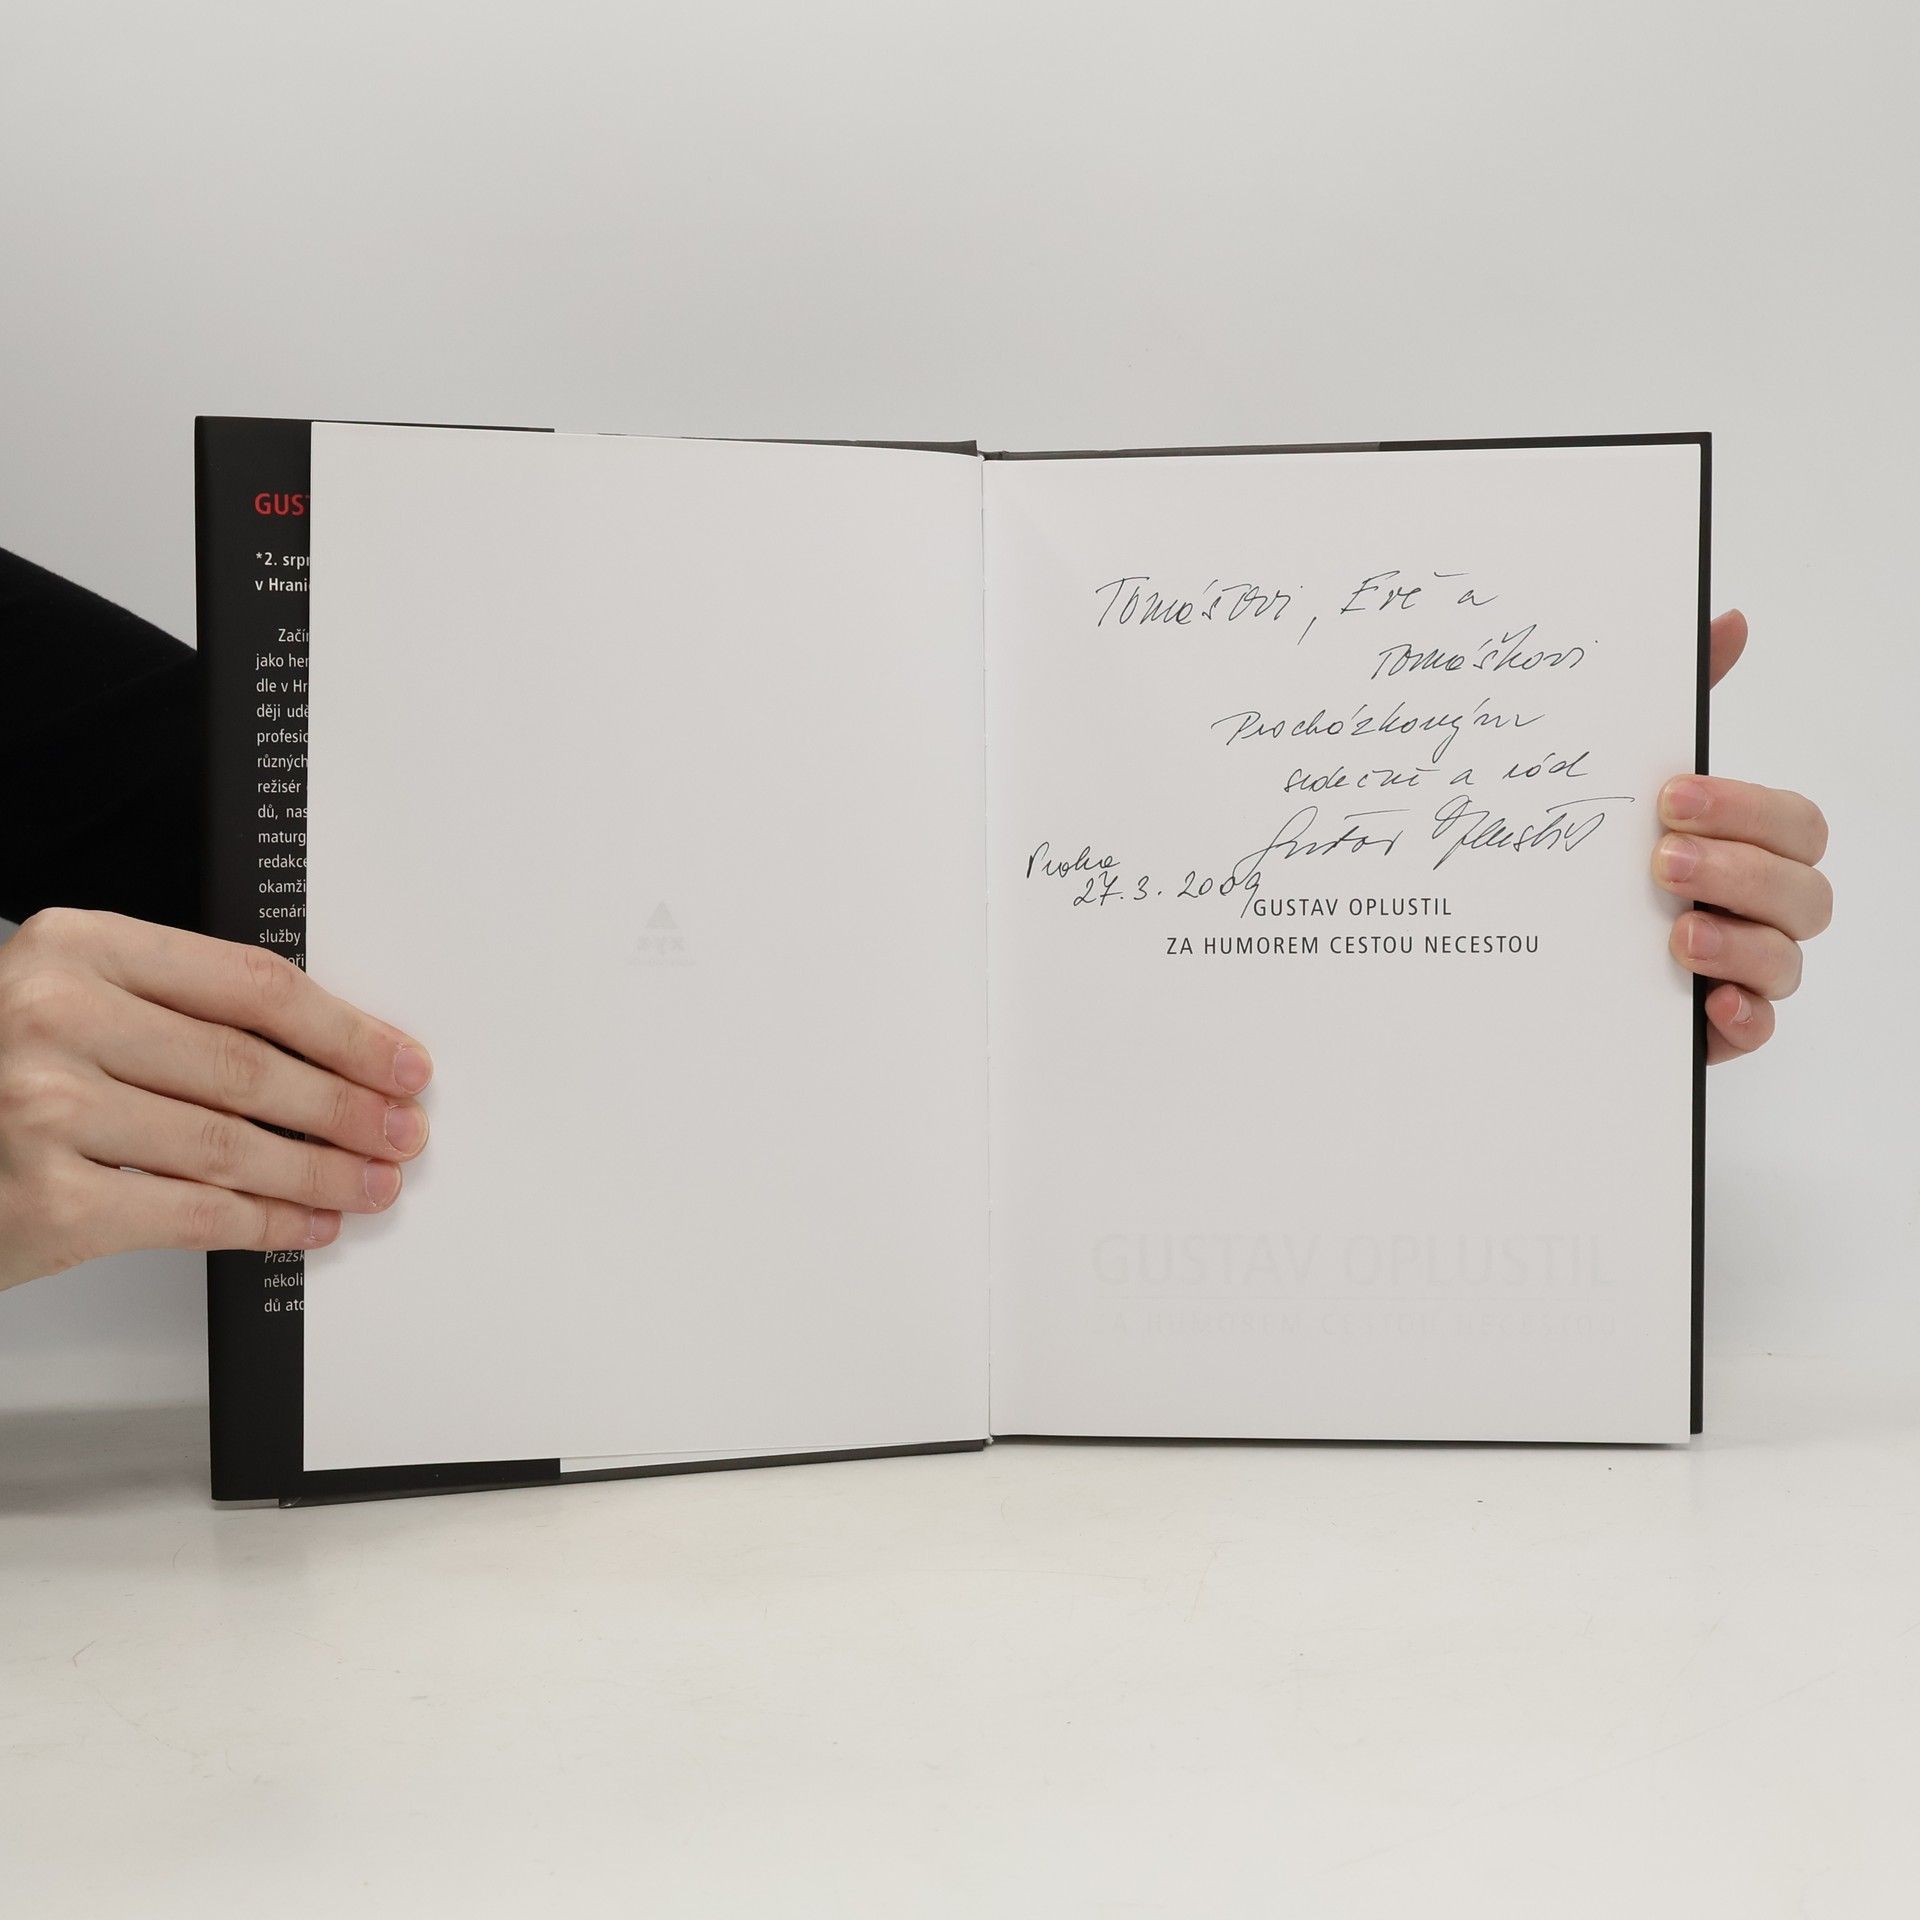 GUS
*2. srp
v Hrani
Začí
jako her
dle v Hr
ději udě
profesio
různých
režisér
dů, nas
maturg
redakce
okamži
scenári
služby
Pražsk
někol
dů ato
Tomášovi, Evě a
Tomáškovi
Procházkovým
srdečně a rád
Gustav Oplustil
Praha
27. 3. 2009
GUSTAV OPLUSTIL
ZA HUMOREM CESTOU NECESTOU
GUSTAV OPLUSTIL
ZA HUMOREM CESTOU NECESTOU